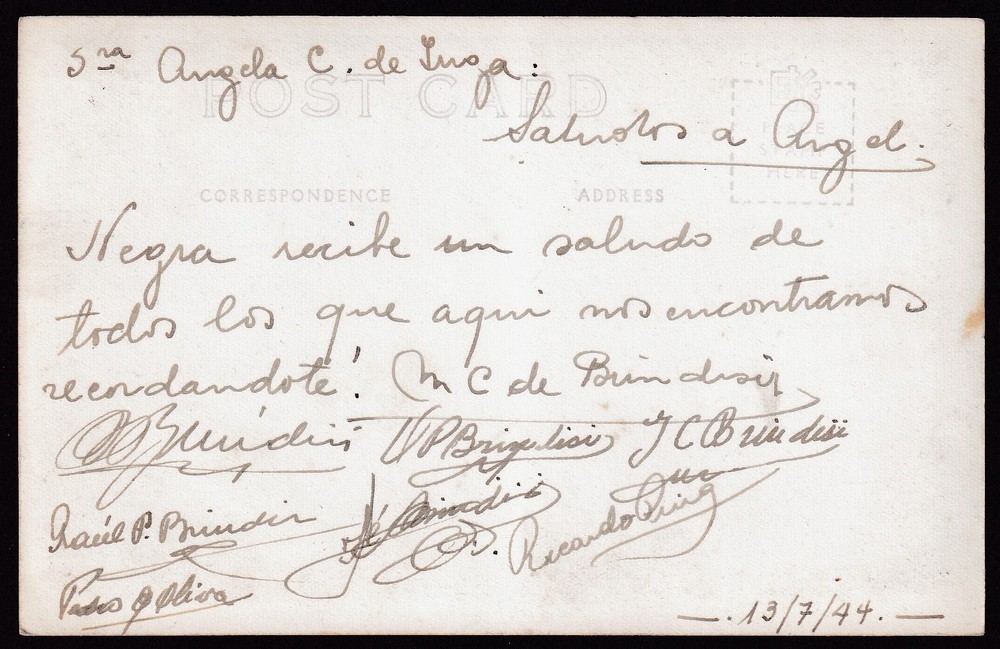 Sra Angela C. de Inga:
POST CARD
Saludos a Angel.
PLACE
STAMP
HERE
CORRESPONDENCE
ADDRESS
Negra recibe un saludo de
todos los que aqui nos encontramos
recordandote! M C de Brindisi
Brindisi P Brindisi J C Brindisi
Raúl P. Brindisi Brindisi Ricardo
Pedro Oliva
—.13/7/44.—